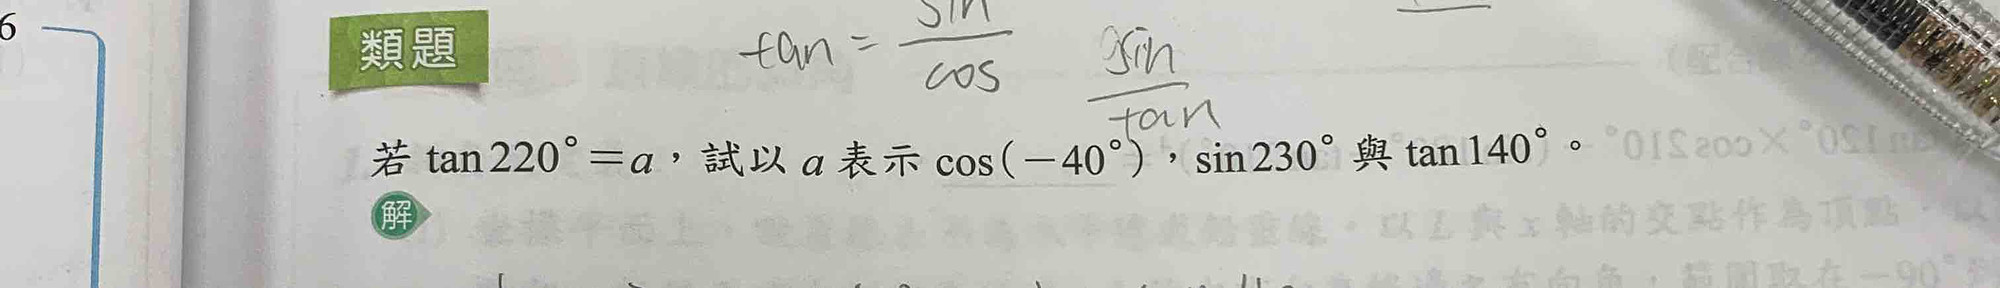 6
類題
tan = sin/cos
sin/tan
若 tan220°=a,試以 a 表示 cos(-40°),sin230° 與 tan140°。
解